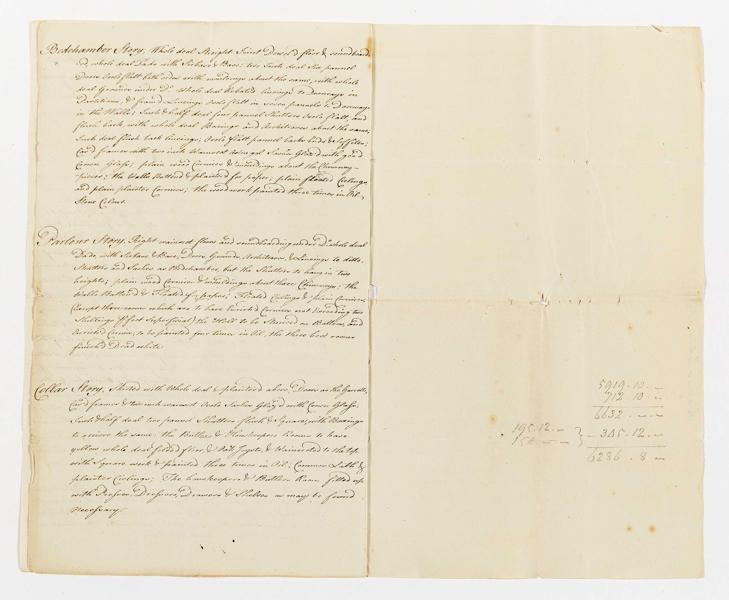 Bedchamber Story, Whole deal Streight Joint Dowel'd floor & soundboard-
ed, whole deal Dado with Surbase & Base; two Inch deal Six pannel
Doors Ovolo flatt both sides with mouldings about the same, with whole
deal Grounds under Do. Whole deal Rebated linings to Doorways in
Partitions, & framd Linings Ovolo flatt in Seven pannels to Doorways
in the Walls; Inch & half deal four pannel Shutters Ovolo flatt, and
flush back, with whole deal Boxings and Architraves about the same,
Inch deal flush back linings, Ovolo flatt pannel backs Ends & Soffites;
Cas'd frames with two inch Wainscot Astragal Sashes Glaz'd with good
Crown Glass; plain wood Cornices & mouldings about the Chimney-
pieces; the Walls Batted & plaistered for paper; plain floated Cielings
and plain plaister Cornices; the woodwork painted three times in Oil,
Stone Colour.
Parlour Story, Right wainscot floors and soundboarding under Do. whole deal
Dado, with Surbase & Base, Doors, Grounds, Architraves, & Linings to ditto,
Shutters and Sashes as Bedchamber, but the Shutters to hang in two
heights; plain wood Cornices & mouldings about three Chimneys; the
Walls Battend & Floated for paper; Floated Cielings & plain Cornices
(Except three rooms which are to have Enriched Cornices not Exceeding two
Shillings [per] foot Superficial) the Hall to be Stuccoed on Battens, and
Enriched Cornice, to be painted four times in Oil, the three best rooms
finish'd Dead white.
Cellar Story, Skirted with Whole deal & plaisterd above, Doors as the Garretts,
Cas'd frames & two inch wainscot Ovolo Sashes Glaz'd with Crown Glass,
Inch & half deal two pannel Shutters flush & Square, with Boxings
to receive the same; the Butlers & Housekeepers Rooms to have
yellow whole deal folded floors, & Oak Joysts, & Wainscoted to the top
with Square work & painted three times in Oil; Common Lath &
plaister Cielings; The housekeepers & Butlers Room fitted up
with Presses Dressers, Drawers & Shelves as may be found
necessary.
5919.10.—
712 10.—
6632 .—.—
195.12.—
150 —.— } — 345.12.—
6286 . 8 —